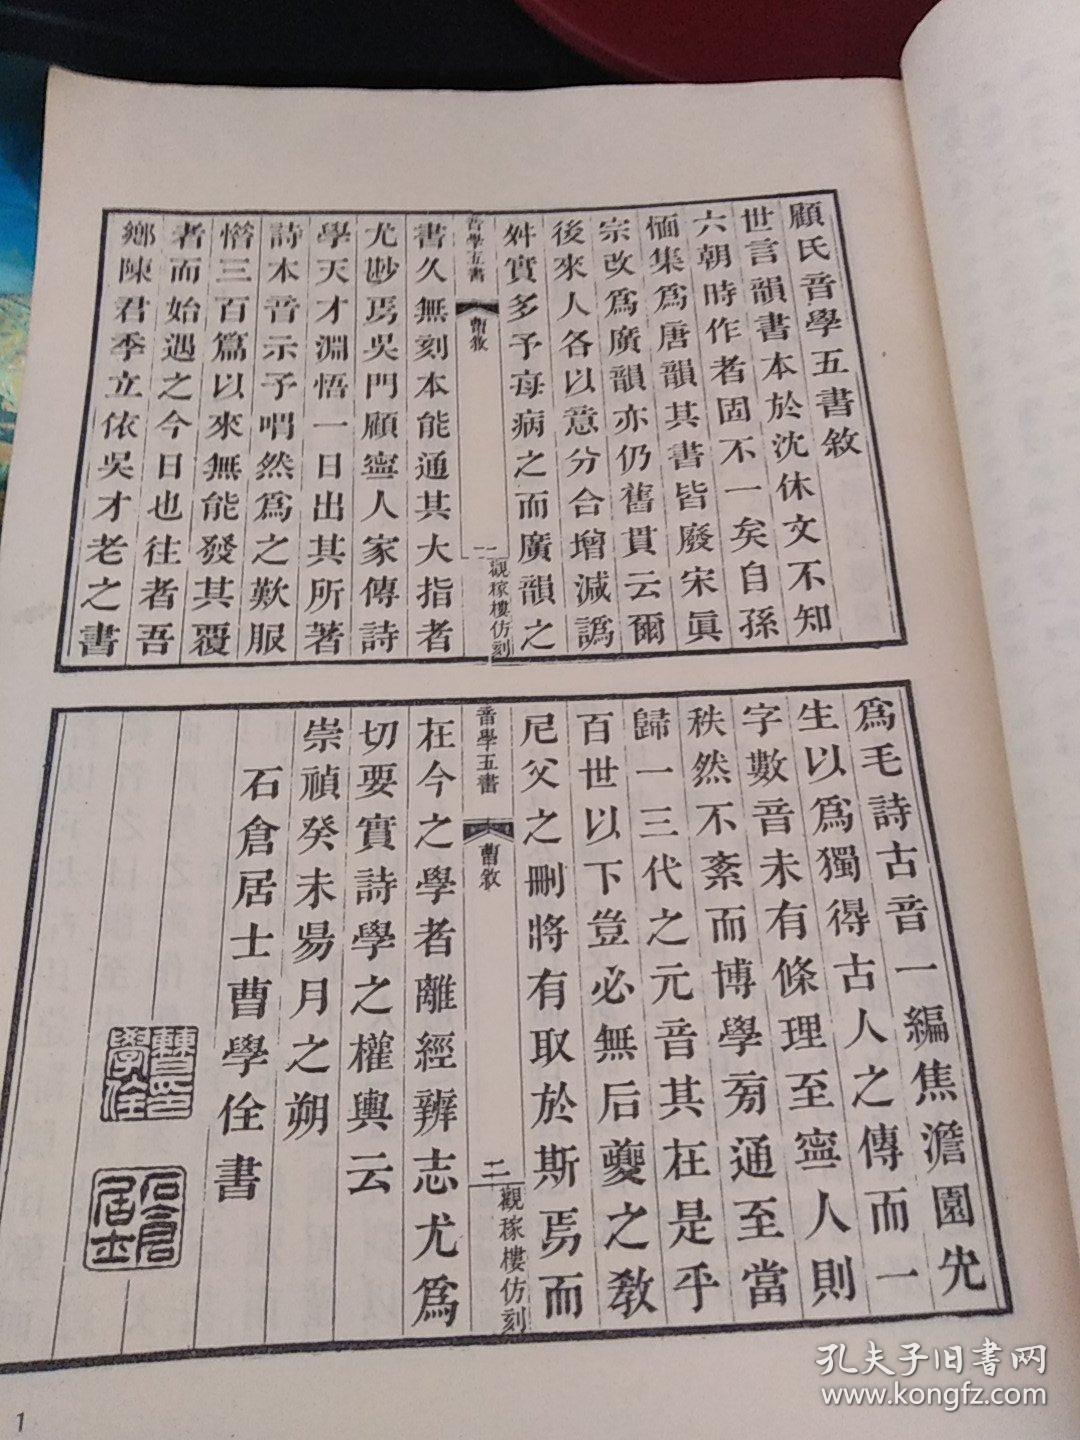 顧氏音學五書敘
世言韻書本於沈休文不知
六朝時作者固不一矣自孫
愐集爲唐韻其書皆廢宋眞
宗改爲廣韻亦仍舊貫云爾
後來人各以意分合增減譌
舛實多予每病之而廣韻之
音學五書
曹敘
一
觀稼樓仿刻
書久無刻本能通其大指者
尤尠焉吳門顧寧人家傳詩
學天才淵悟一日出其所著
詩本音示予喟然爲之歎服
㗭三百篇以來無能發其覆
者而始遇之今日也往者吾
鄉陳君季立依吳才老之書
爲毛詩古音一編焦澹園先
生以爲獨得古人之傳而一
字數音未有條理至寧人則
秩然不紊而博學旁通至當
歸一三代之元音其在是乎
百世以下豈必無后夔之教
尼父之刪將有取於斯焉而
音學五書
曹敘
二
觀稼樓仿刻
在今之學者離經辨志尤爲
切要實詩學之權輿云
崇禎癸未昜月之朔
石倉居士曹學佺書
曹學佺印
石倉居士
1
孔夫子旧書网
www.kongfz.com